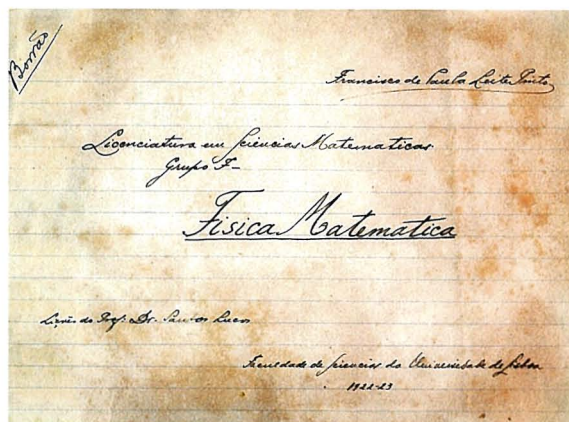 Borrão
Francisco de Paula Leite Pinto
Licenciatura em Sciencias Matematicas
Grupo F-
Fisica Matematica
Lições do Prof: Dr. Santos Lucas
Faculdade de Sciencias da Universidade de Lisboa
1922-23